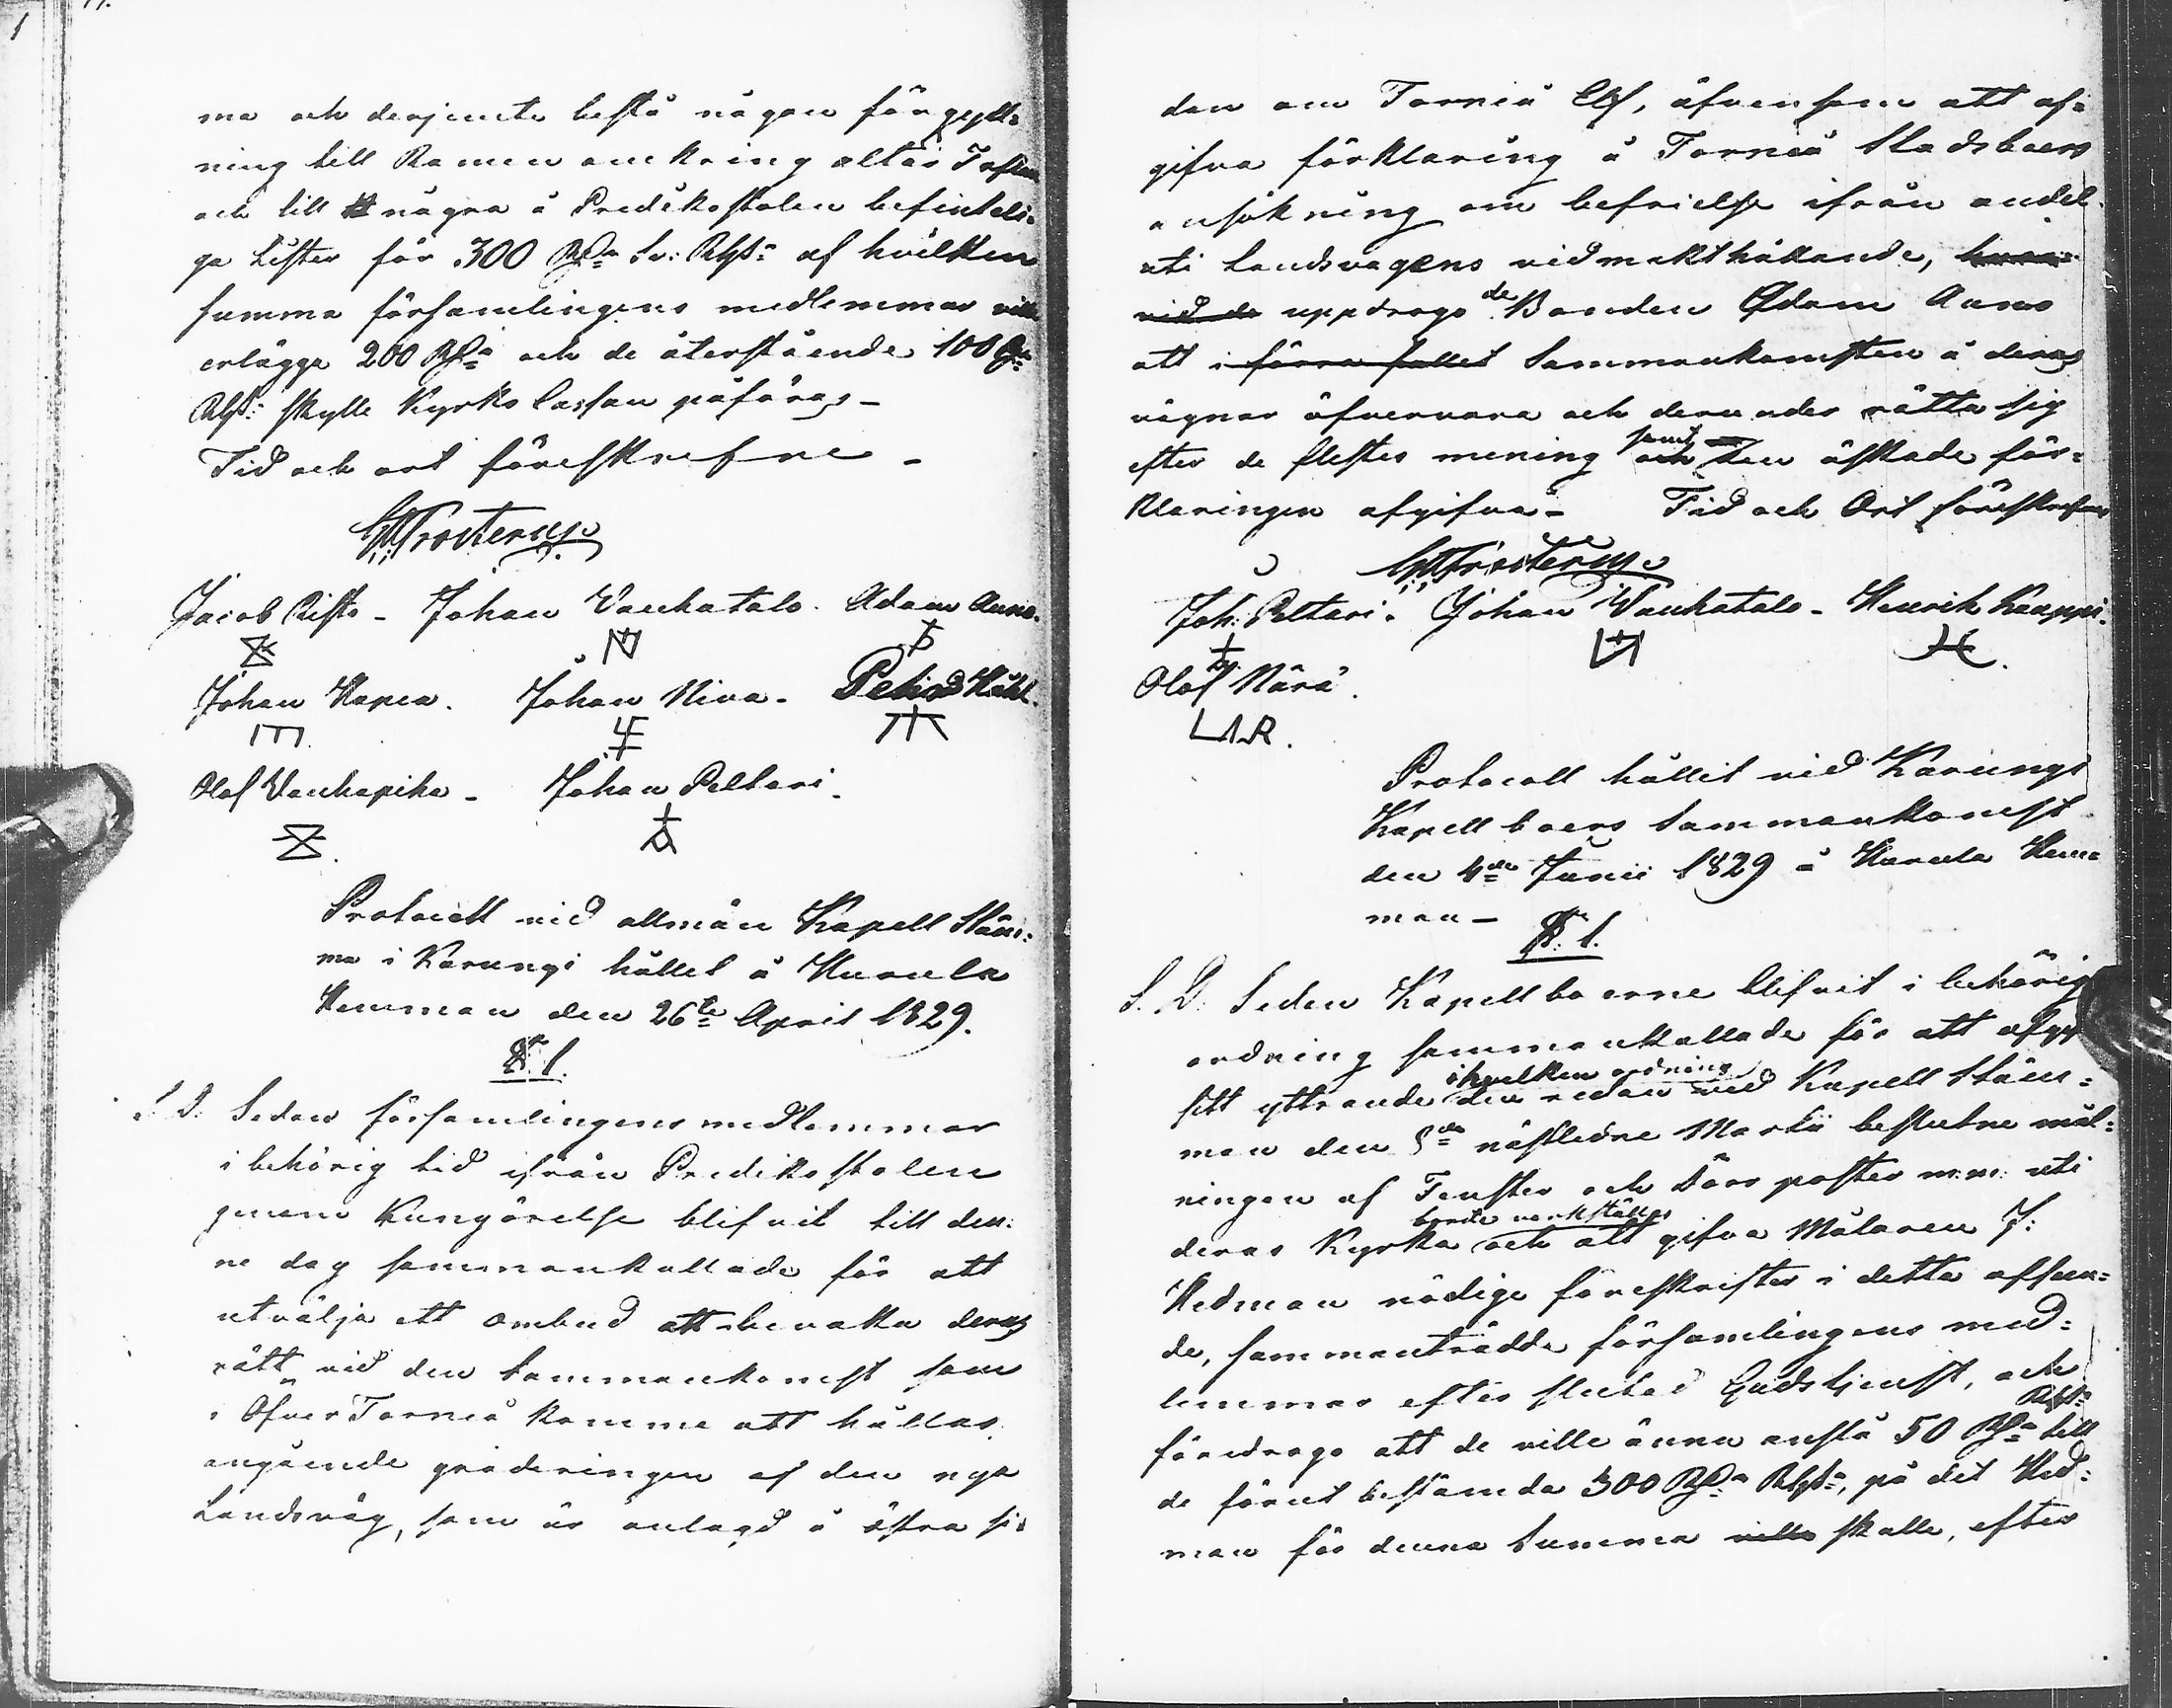 ma och derjemte bestå någon förgyll=
ning till Ramen omkring altar Taflan
och till några å Predikostolen befinteli=
ga Lister för 300 Rdr Sv: Rgs: af hvilken
summa församlingens medlemmar ville
erlägga 200 Rdr och de återstående 100 Rdr
Rgs: skulle Kyrko Cassan påföras –
Tid och ort föreskrefne –
Frosterus
Jacob Risto – Johan Vanhatalo. Adam Auno.
Johan Hapea. Johan Niva – Hähl.
Olof Vanhapiha – Johan Peltari.
Protocoll vid allmän Kapell Stäm=
ma i Karungi hållet å Kurula
Hemman den 26te April 1829.
§. 1.
S. D. Sedan församlingens medlemmar
i behörig tid ifrån Predikostolen
genom Kungörelse blifvit till den=
ne dag sammankallade för att
utvälja ett ombud att bevaka deras
rätt vid den Sammankomst som
i Öfver Torneå komme att hållas
angående graderingen af den nya
Landsväg, som är anlagd å östra si=
dan om Torneå Elf, äfvensom att af=
gifva förklaring å Torneå Stadsboers
ansökning om befrielse ifrån andel
uti Landsvägens vidmakthållande,
vid de uppdrogo de Bonden Adam Auno
att i förra fallet Sammankomsten å deras
vägnar öfvervara och derunder rätta sig
efter de flestes mening samt och den äskade för=
klaringen afgifva – Tid och Ort föreskrefne
Frosterus
Joh: Peltari. Johan Vanhatalo – Henrik Kauppi.
Olof Närä.
LAR.
Protocoll hållit vid Karungi
Kapellboers Sammankomst
den 4de Junii 1829 å Kurula Hem=
man –
§. 1.
S. D. Sedan Kapellboerne blifvit i behörig
ordning sammankallade för att afge
sitt yttrande i hvilken ordning den redan vid Kapell Stäm=
man den 8de nästledne Martii beslutne mål=
ningen af Fenster och Dörr poster m.m. uti
deras Kyrka borde verkställas och att gifva Målaren J:
Hedman nödige föreskrifter i detta afseen=
de, sammanträdde församlingens med=
lemmar efter slutad Gudstjenst, och
föredrogo att de ville ännu anslå 50 Rdr Rgs: till
de förut bestämda 300 Rdr Rgs:, på det Hed=
man för denna Summa ville skulle, efter